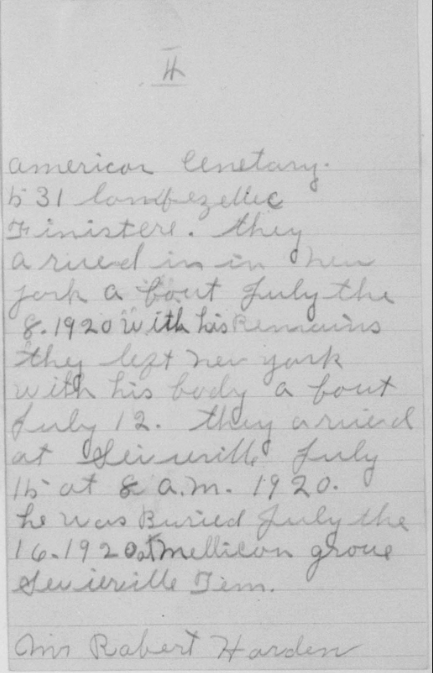 II
american Cenetary.
531 lambezellec
Finistere. they
arived in in new
york a bout July the
8. 1920 with his Remains
they left new york
with his body a bout
July 12. they arived
at Sevierville July
15 at 8 a.m. 1920.
he was Buried July the
16-1920 at Millican grove
Sevierville Tenn.
Mrs Robert Harden